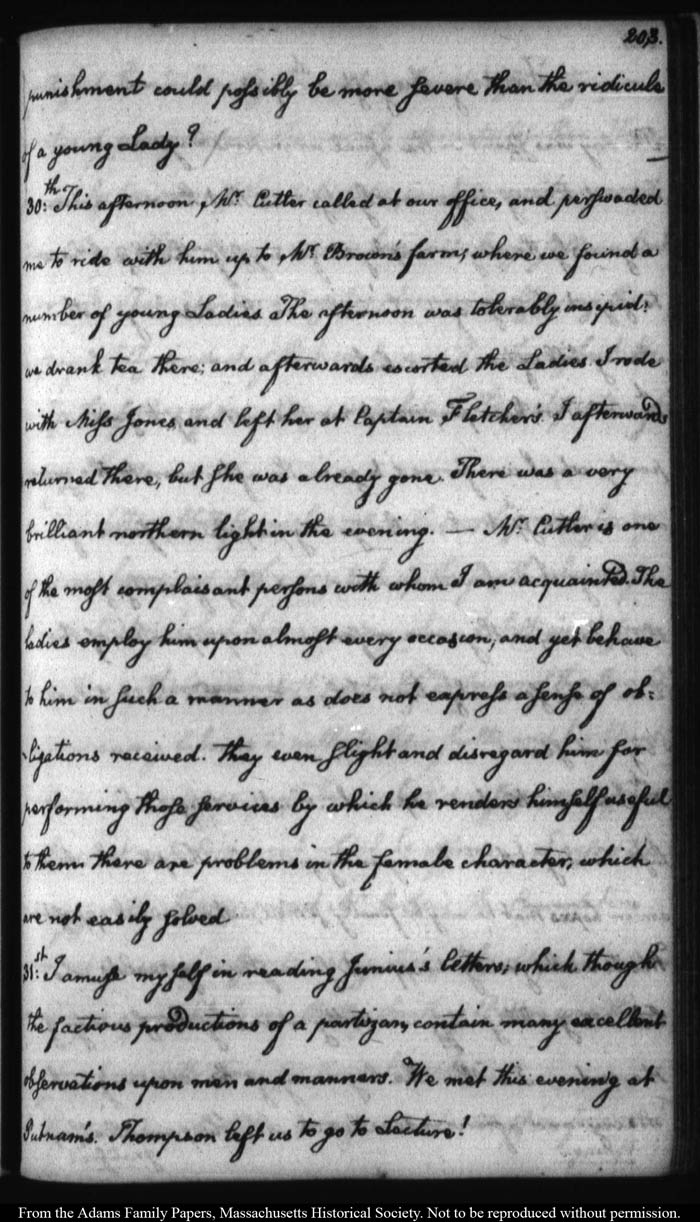 203.
punishment could poſsibly be more ſevere than the ridicule
of a young Lady?
30:th This afternoon, Mr. Cutler called at our office, and perſwaded
me to ride with him up to Mr. Brown's farm; where we found a
number of young Ladies. The afternoon was tolerably insipid:
we drank tea there; and afterwards escorted the Ladies. I rode
with Miſs Jones, and left her at Captain Fletcher's. I afterwards
returned there, but ſhe was already gone. There was a very
brilliant northern light in the evening. — Mr. Cutler is one
of the moſt complaisant perſons with whom I am acquainted. The
ladies employ him upon almoſt every occasion, and yet behave
to him in ſuch a manner as does not expreſs a ſenſe of ob:
:ligations received. They even ſlight and disregard him for
performing thoſe ſervices by which he renders himſelf useful
to them: there are problems in the female character, which
are not easily ſolved.
31:st I amuſe myſelf in reading Junius's letters; which though
the factious productions of a partizan, contain many excellent
obſervations upon men and manners. We met this evening at
Putnam's. Thompson left us to go to Lecture!
From the Adams Family Papers, Massachusetts Historical Society. Not to be reproduced without permission.